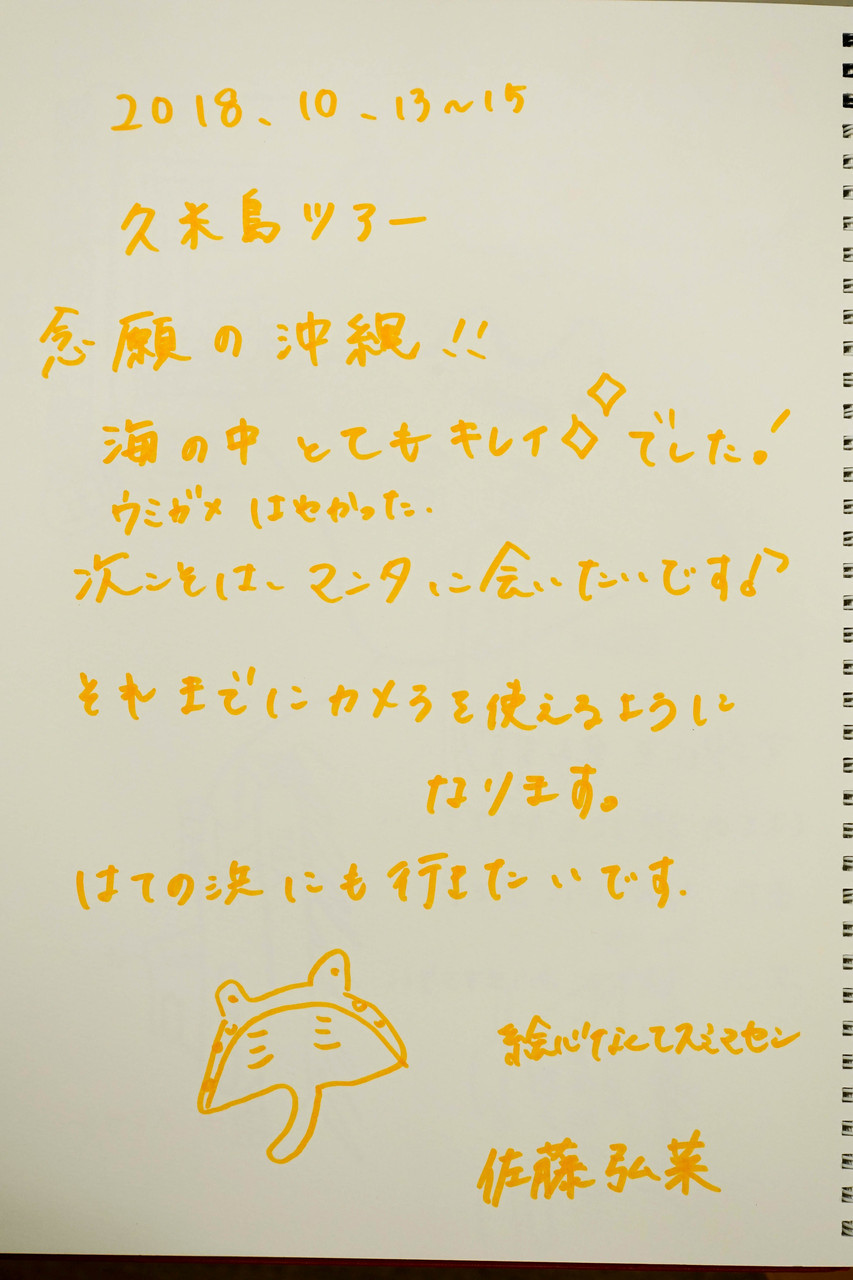 2018、10、13～15
久米島ツアー
念願の沖縄!!
海の中とてもキレイでした!
ウミガメはやかった.
次こそは、マンタに会いたいです♪
それまでにカメラを使えるように
なります。
はての浜にも行きたいです.
絵心なくてスミマセン
佐藤弘菜